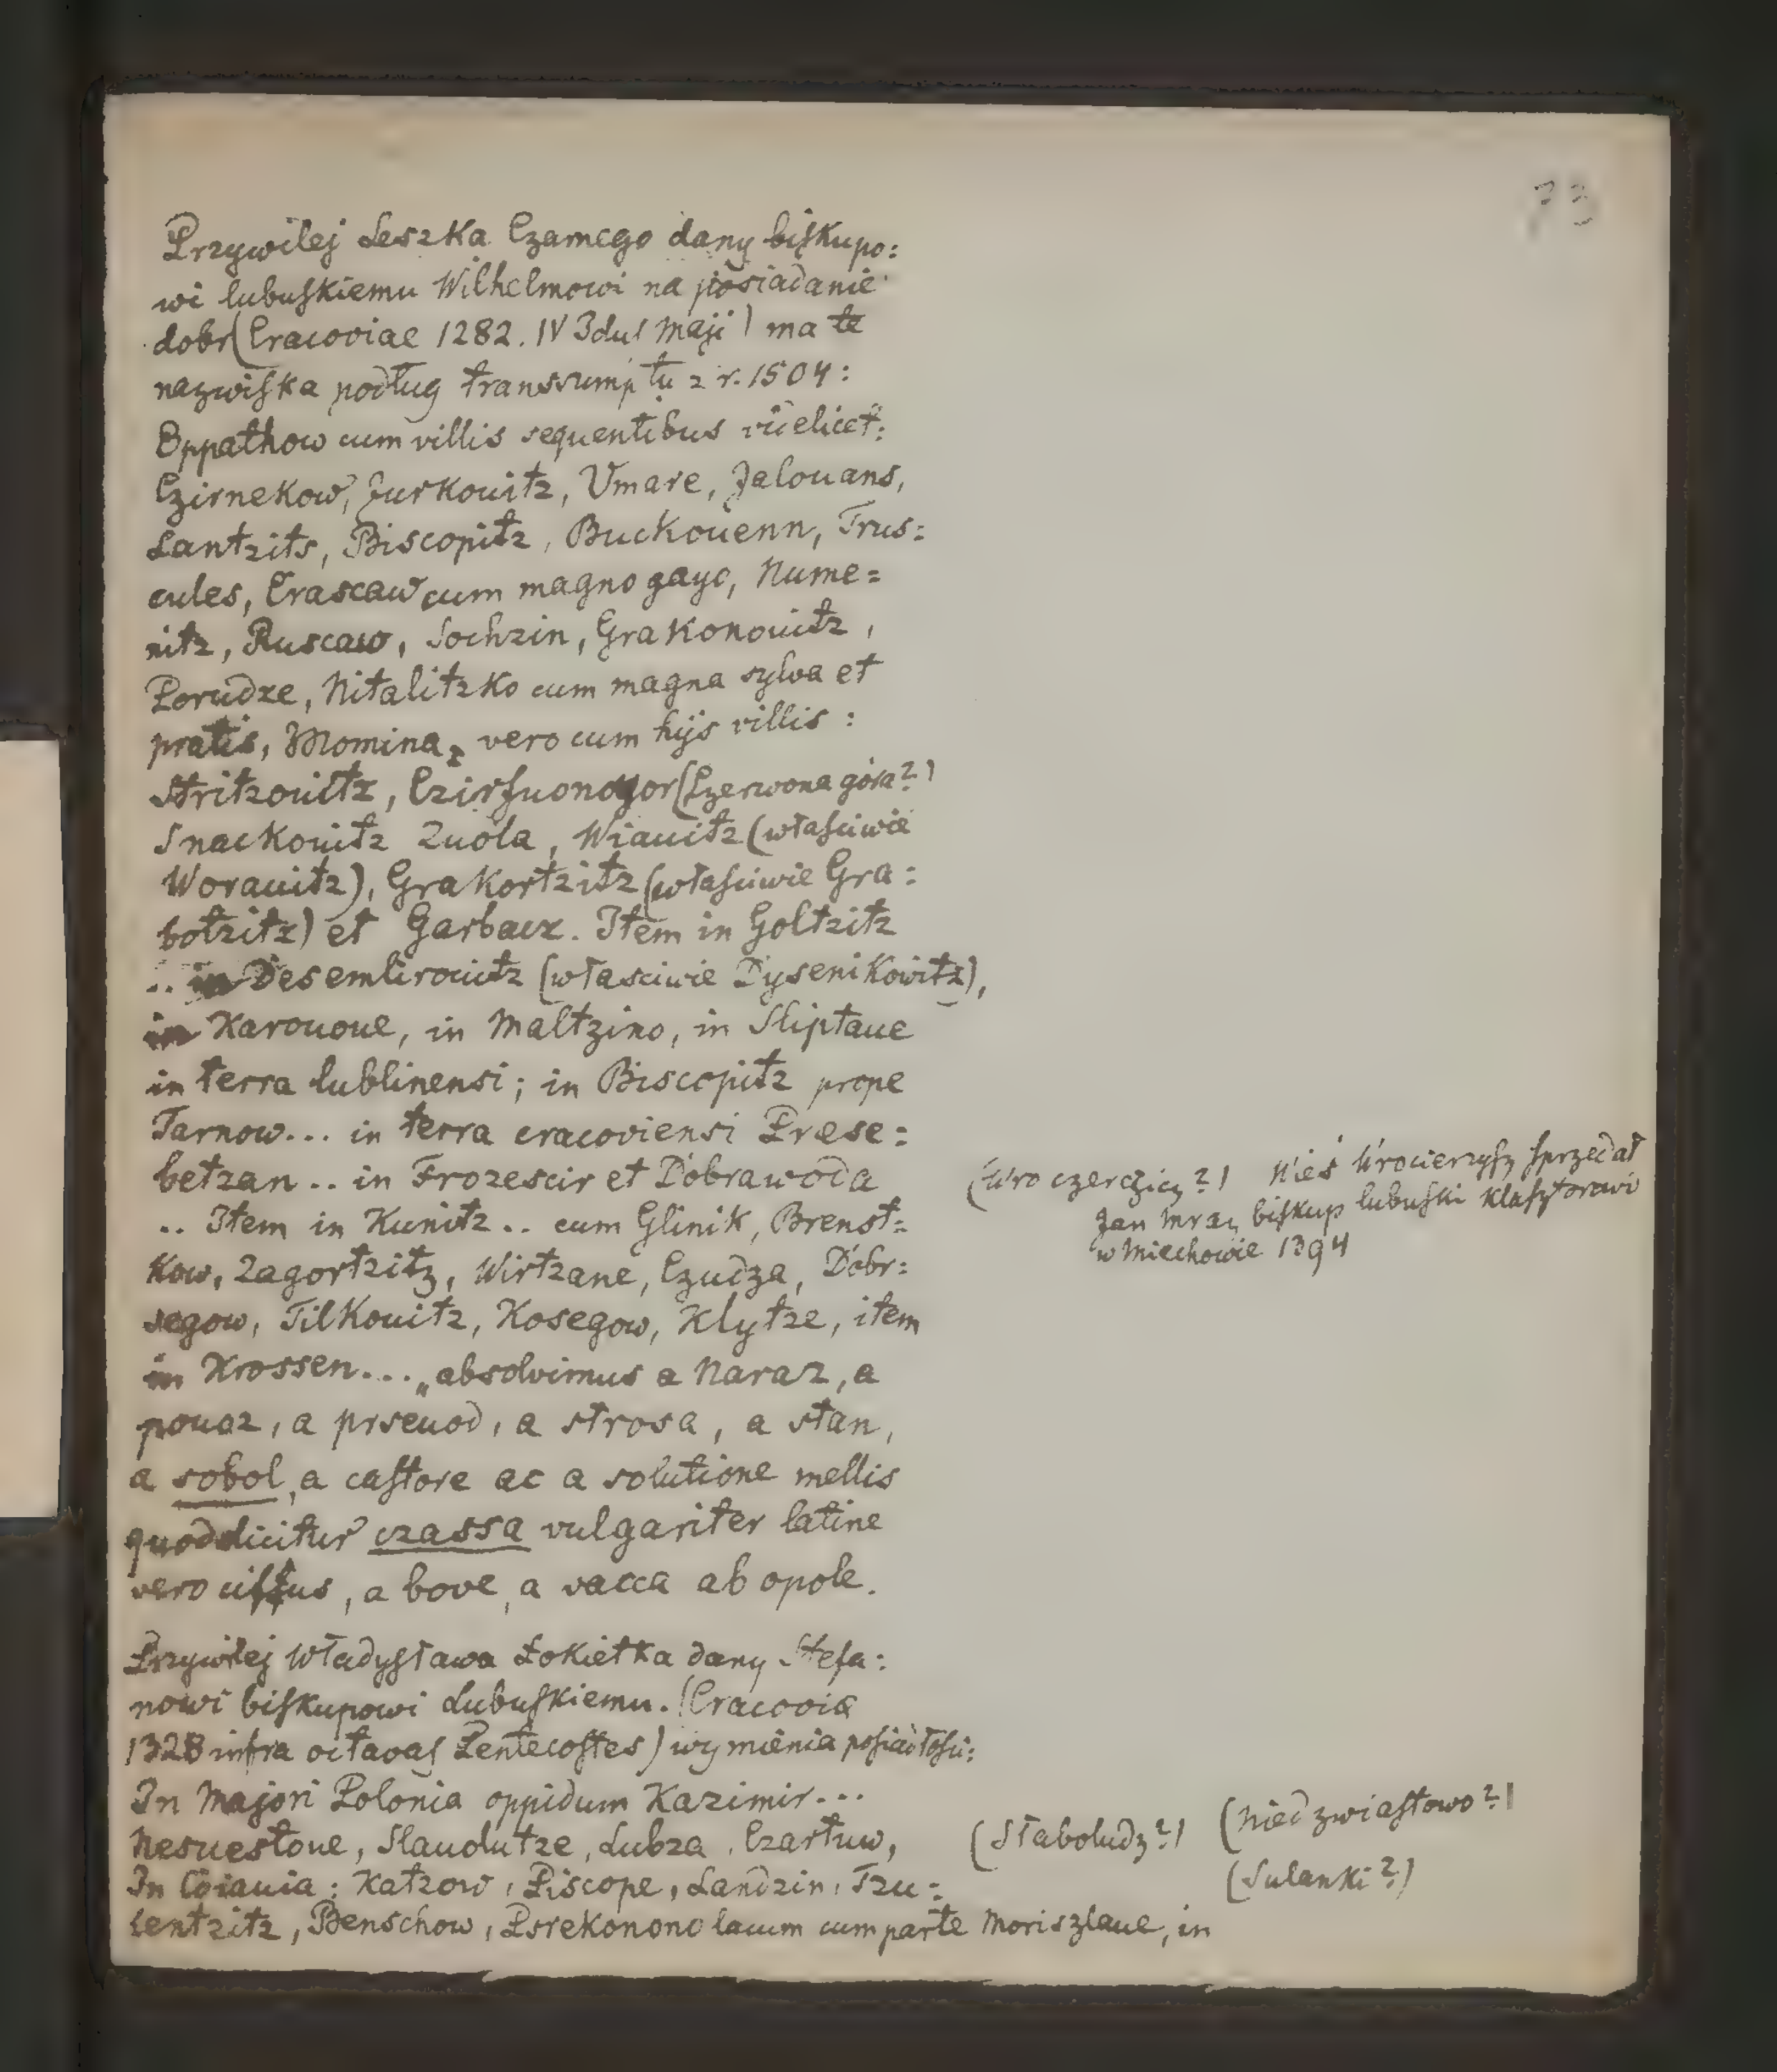 73
Przywilej Leszka Czarnego dany biskupo:
wi lubuskiemu Wilhelmowi na posiadanie
dobr (Cracoviae 1282. IV Idus Maji) ma te
nazwiska podług transsumptu z r. 1504:
Oppathow cum villis sequentibus videlicet:
Czirnekow, Jurkouitz, Vmare, Jalouans,
Lantzits, Biscopitz, Buckouenn, Trus:
cules, Crascaw cum magno gayo, Nume=
nitz, Ruscaw, Sochzin, Grakonouitz,
Porudze, Nitalitzko cum magna sylva et
pratis, Momina, vero cum hijs villis:
Stritzouitz, Czirsuonogor (Czerwona góra?)
Snackouitz Zuola, Wiauitz (własciwie
Worauitz), Grakortzitz (własciwie Gra:
botzitz) et Garbacz. Item in Goltzitz
.. in Desemlirouitz (własciwie Dysenikowitz),
in Karououe, in Maltzino, in Sliptaue
in terra lublinensi; in Biscopitz prope
Tarnow... in terra cracoviensi Prese=
betzan .. in Frozescir et Dobrawoda
(Wroczerczicz?) Wieś Wrocierzysz sprzedał
Jan Mraz biskup lubuski klasztorowi
w Miechowie 1394
.. Item in Kunitz .. cum Glinik, Brenst=
kow, Zagortzitz, Wirtzane, Czudza, Dobr=
segow, Tilkouitz, Kosegow, Klytze, item
in Krossen... „absolvimus a naraz, a
pouoz, a prseuod, a strosa, a stan,
a sobol, a castore ac a solutione mellis
quod dicitur czassa vulgariter latine
vero ciffus, a bove, a vacca ab opole.
Przywilej Władysława Łokietka dany Stefa:
nowi biskupowi Lubuskiemu. (Cracovia
1328 infra octavas Pentecostes) wymienia posiadłości:
In Majori Polonia oppidum Kazimir...
Nesuestoue, Slaudutze, Lubza, Czartuw,
(Słaboludz?) (Niedzwiastowo?)
(Sulanki?)
In Coiauia: Katzow, Piscope, Landzin, Tzu=
lentzitz, Benschow, Psrekonono lacum cum parte Moriszlaue, in